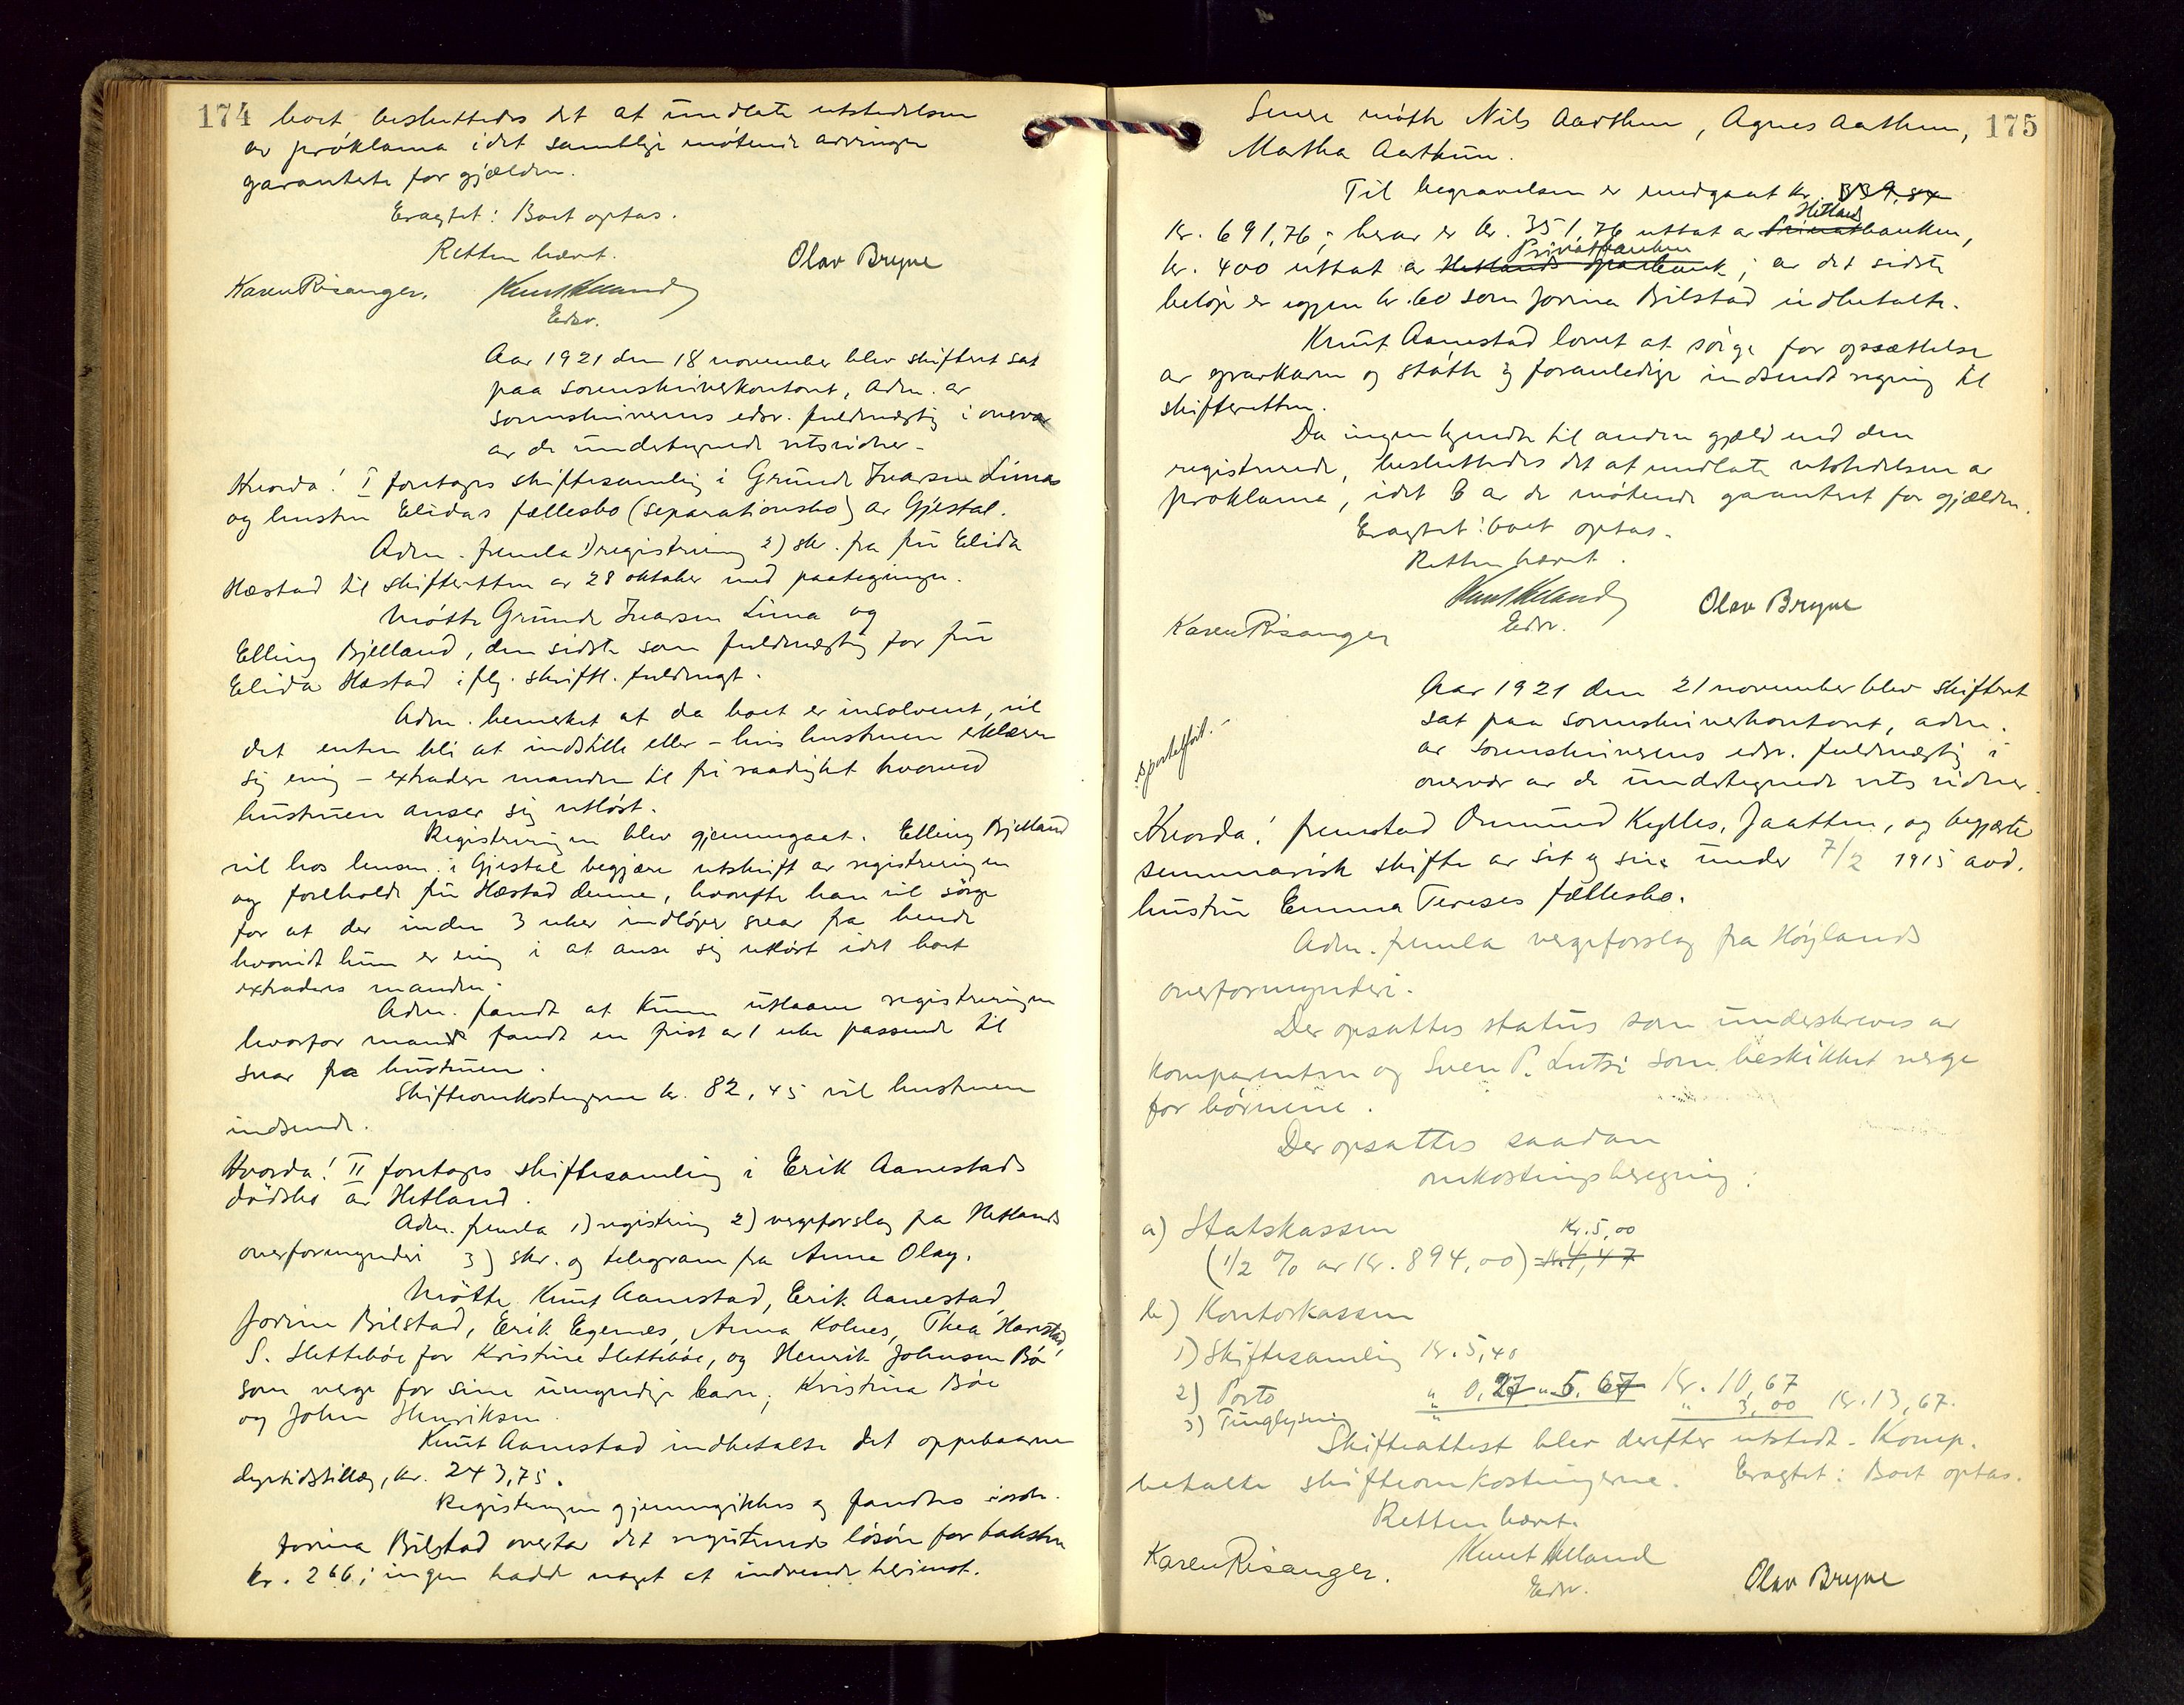 174
boet besluttedes det at undlate utstedelsen
av proklama idet samtlige møtende arvinger
garanterte for gjælden.
Eragtet: Boet optas.
Retten hævet.
Olav Bryne
Karen Risanger. Knut Helland
Edsv.
Aar 1921 den 18 november blev skifteret sat
paa sorenskriverkontoret, adm. av
sorenskriverens edsv. fuldmægtig i overvær
av de undertegnede retsvidner.
Hvorda! I foretages skiftesamling i Grunde Ivarsen Limas
og hustru Elidas fællesbo (separationsbo) av Gjestal.
Adm. fremla 1) registrering 2) skr. fra fru Elida
Hæstad til skifteretten av 28 oktober med paategninger.
Møtte Grunde Ivarsen Lima og
Elling Bjelland, den sidste som fuldmægtig for fru
Elida Hæstad iflg. skriftl. fuldmagt.
Adm. bemerket at da boet er insolvent, vil
det enten bli at indstille eller – hvis hustruen erklærer
sig enig – extradere manden til fri raadighet hvorved
hustruen anser sig utløst.
Registreringen blev gjennemgaat. Elling Bjelland
vil hos lensm. i Gjestal begjære utskrift av registreringen
og foreholde fru Hæstad denne, hvorefter han vil sørge
for at der inden 3 uker indløper svar fra hende
hvorvidt hun er enig i at anse sig utløst idet boet
extraderes manden.
Adm. fandt at kunne utlaane registreringen
hvorfor mand fandt en frist av 1 uke passende til
svar fra hustruen.
Skifteomkostningerne kr. 82,45 vil hustruen
indsende.
Hvorda! II foretages skiftesamling i Erik Aanestads
dødsbo av Hetland.
Adm. fremla 1) registrering 2) vergeforslag fra Hetlands
overformynderi 3) skr. og telegram fra Anna Olay.
Møtte Knut Aanestad, Erik Aanestad,
Jorina Bilstad, Erik Egenes, Anna Kolnes, Thea Harestad,
S. Slettebøe for Kristine Slettebøe, og Henrik Johnsen Bø
som verge for sine umyndige barn, Kristina Bøe
og John Henriksen.
Knut Aanestad indbetalte det oppebaarne
dyrtidstillæg, kr. 243,75.
Registeringen gjennemgikkes og fandtes iorden.
Jorina Bilstad overtar det registrerede løsøre for taksten
kr. 266; ingen hadde noget at indvende herimot.
175
Senere møtte Nils Aarthun, Agnes Aarthun,
Martha Aarthun.
Til begravelsen er medgaat kr. 339,84
kr. 691,76; herav er kr. 351,76 uttat av Hetland Privatbanken,
kr. 400 uttat av Hetlands sparebank Privatbanken; av det sidste
beløp er igjen kr. 60 som Jorina Bilstad indbetalte.
Knut Aanestad lovet at sørge for opsættelse
av gravkarm og støtte og foranledige indsendt regning til
skifteretten.
Da ingen kjendte til anden gjæld end den
registrerede, besluttedes det at undlate utstedelsen av
proklama, idet 8 av de møtende garanteret for gjælden.
Eragtet: boet optas.
Retten hævet.
Knut Helland
Edsv.
Olav Bryne
Karen Risanger
Aar 1921 den 21 november blev skifteret
sat paa sorenskriverkontoret, adm.
av sorenskriverens edsv. fuldmægtig i
overvær av de undertegnede retsvidner.
Hvorda! fremstod Omund Kylles, Jaatten, og begjærte
summarisk skifte av sit og sin under 7/2 1915 avd.
hustru Emma Tereses fællesbo.
Adm. fremla vergeforslag fra Høylands
overformynderi.
Der opsattes status som underskreves av
komparenten og Sven P. Lutsi som beskikket verge
for børnene.
Der opsattes saadan
omkostningsberegning:
a) Statskassen Kr. 5,00
(1/2 % av Kr. 894,00) = Kr. 4,47
b) Kontorkassen
1) Skiftesamling Kr. 5,40
2) Porto " 0,27 " 5,67 Kr. 10,67
3) Tinglysning " " 3,00 Kr. 13,67.
Skifteattest blev derefter utstedt. Komp.
betalte skifteomkostningerne. Eragtet: Boet optas.
Retten hævet.
Karen Risanger. Knut Helland
Edsv.
Olav Bryne